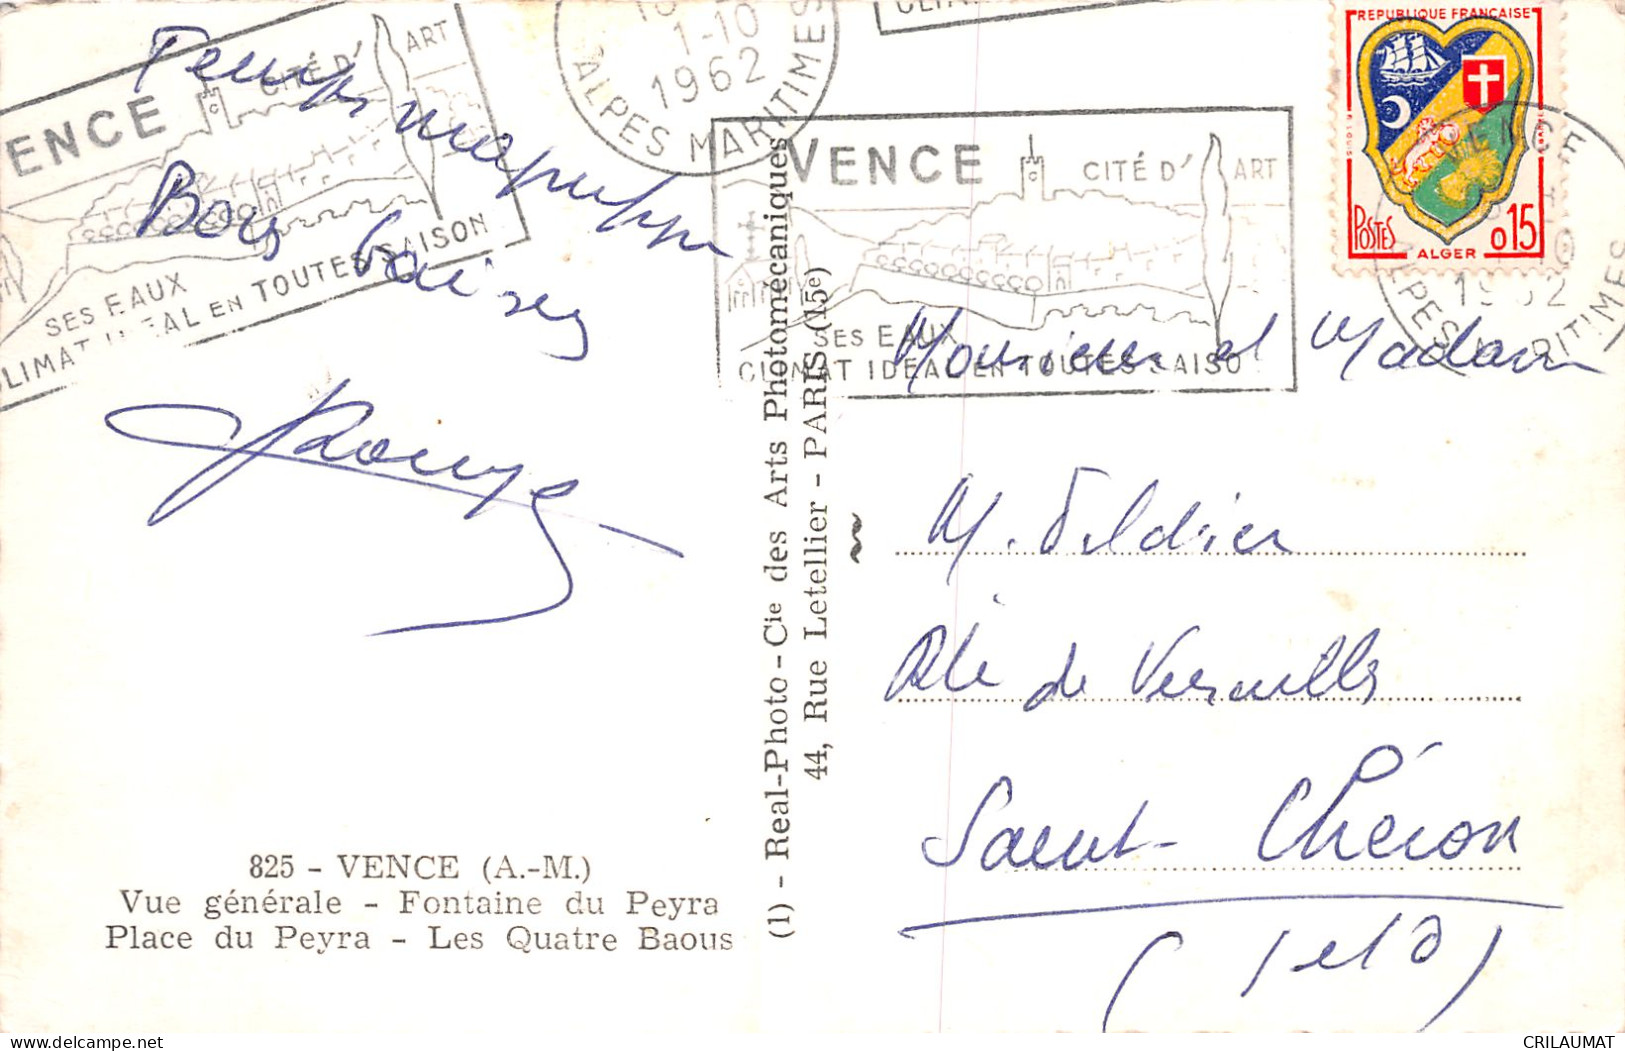 Temps magnifique
Bons baisers
1-10
1962
ALPES MARITIMES
ENCE
CITÉ D'ART
SES EAUX
CLIMAT IDEAL EN TOUTES SAISON
VENCE
CITÉ D'ART
SES EAUX
CLIMAT IDEAL EN TOUTES SAISO
REPUBLIQUE FRANÇAISE
POSTES
ALGER
0,15
VENCE
1962
ALPES MARITIMES
Monsieur et Madame
M.
de Versailles
Saint-Chéron
(S et O)
825 - VENCE (A.-M.)
Vue générale - Fontaine du Peyra
Place du Peyra - Les Quatre Baous
(1) - Real-Photo - Cie des Arts Photomécaniques
44, Rue Letellier - PARIS (15e)
CRILAUMAT